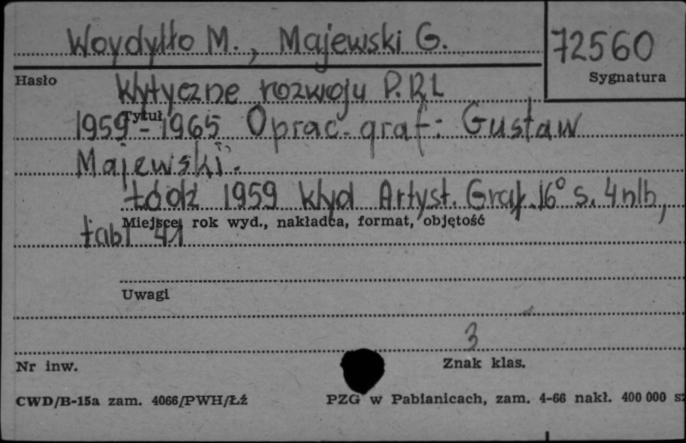 Woydyłło M., Majewski G.
72560
Hasło
Sygnatura
Wytyczne rozwoju P.R.L
Tytuł
1959-1965 Oprac. graf: Gustaw
Majewski.
Łódź 1959 Wyd Artyst. Graf. 16° s. 4nlb,
Miejsce, rok wyd., nakładca, format, objętość
tabl 41
Uwagi
3
Nr inw.
Znak klas.
CWD/B-15a zam. 4066/PWH/Łź
PZG w Pabianicach, zam. 4-66 nakł. 400 000 sz